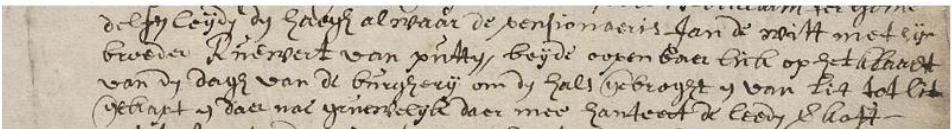 delft leyde den haegh alwaar de pensionaeris Jan de witt met sijn
broeder Ruewert van putten, beyde oopenbaer lick op het klaarst
van den dagh van de burghery om den hals gebroght en van lit tot lit
gekapt en daer nae gruewelyck daer mee hanteert de leeden